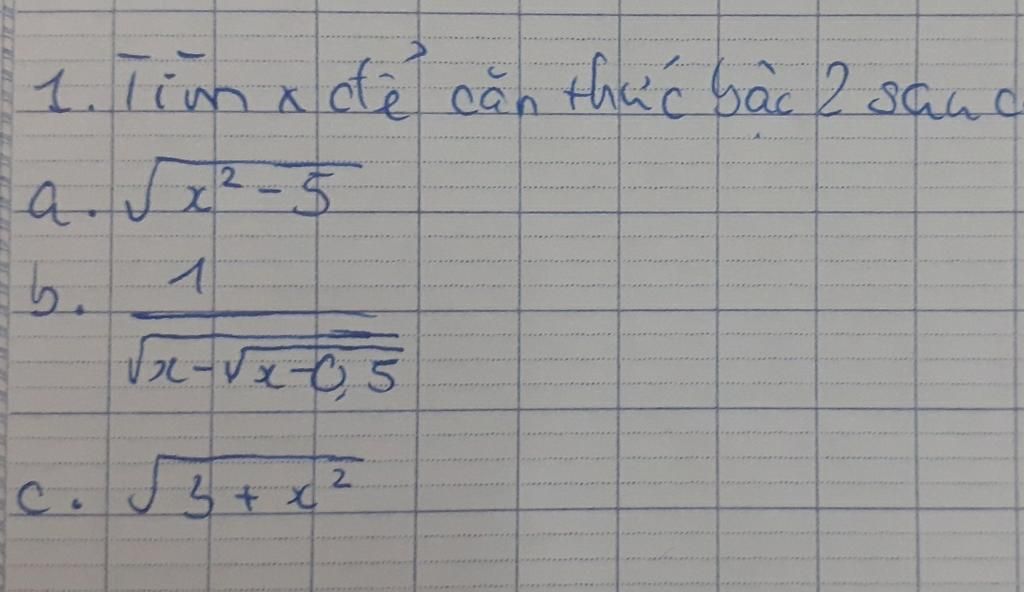 1. Tìm x để căn thức bậc 2 sau
a. √(x² - 5)
b. 1/√(x - √(x - 0,5))
c. √(3 + x²)